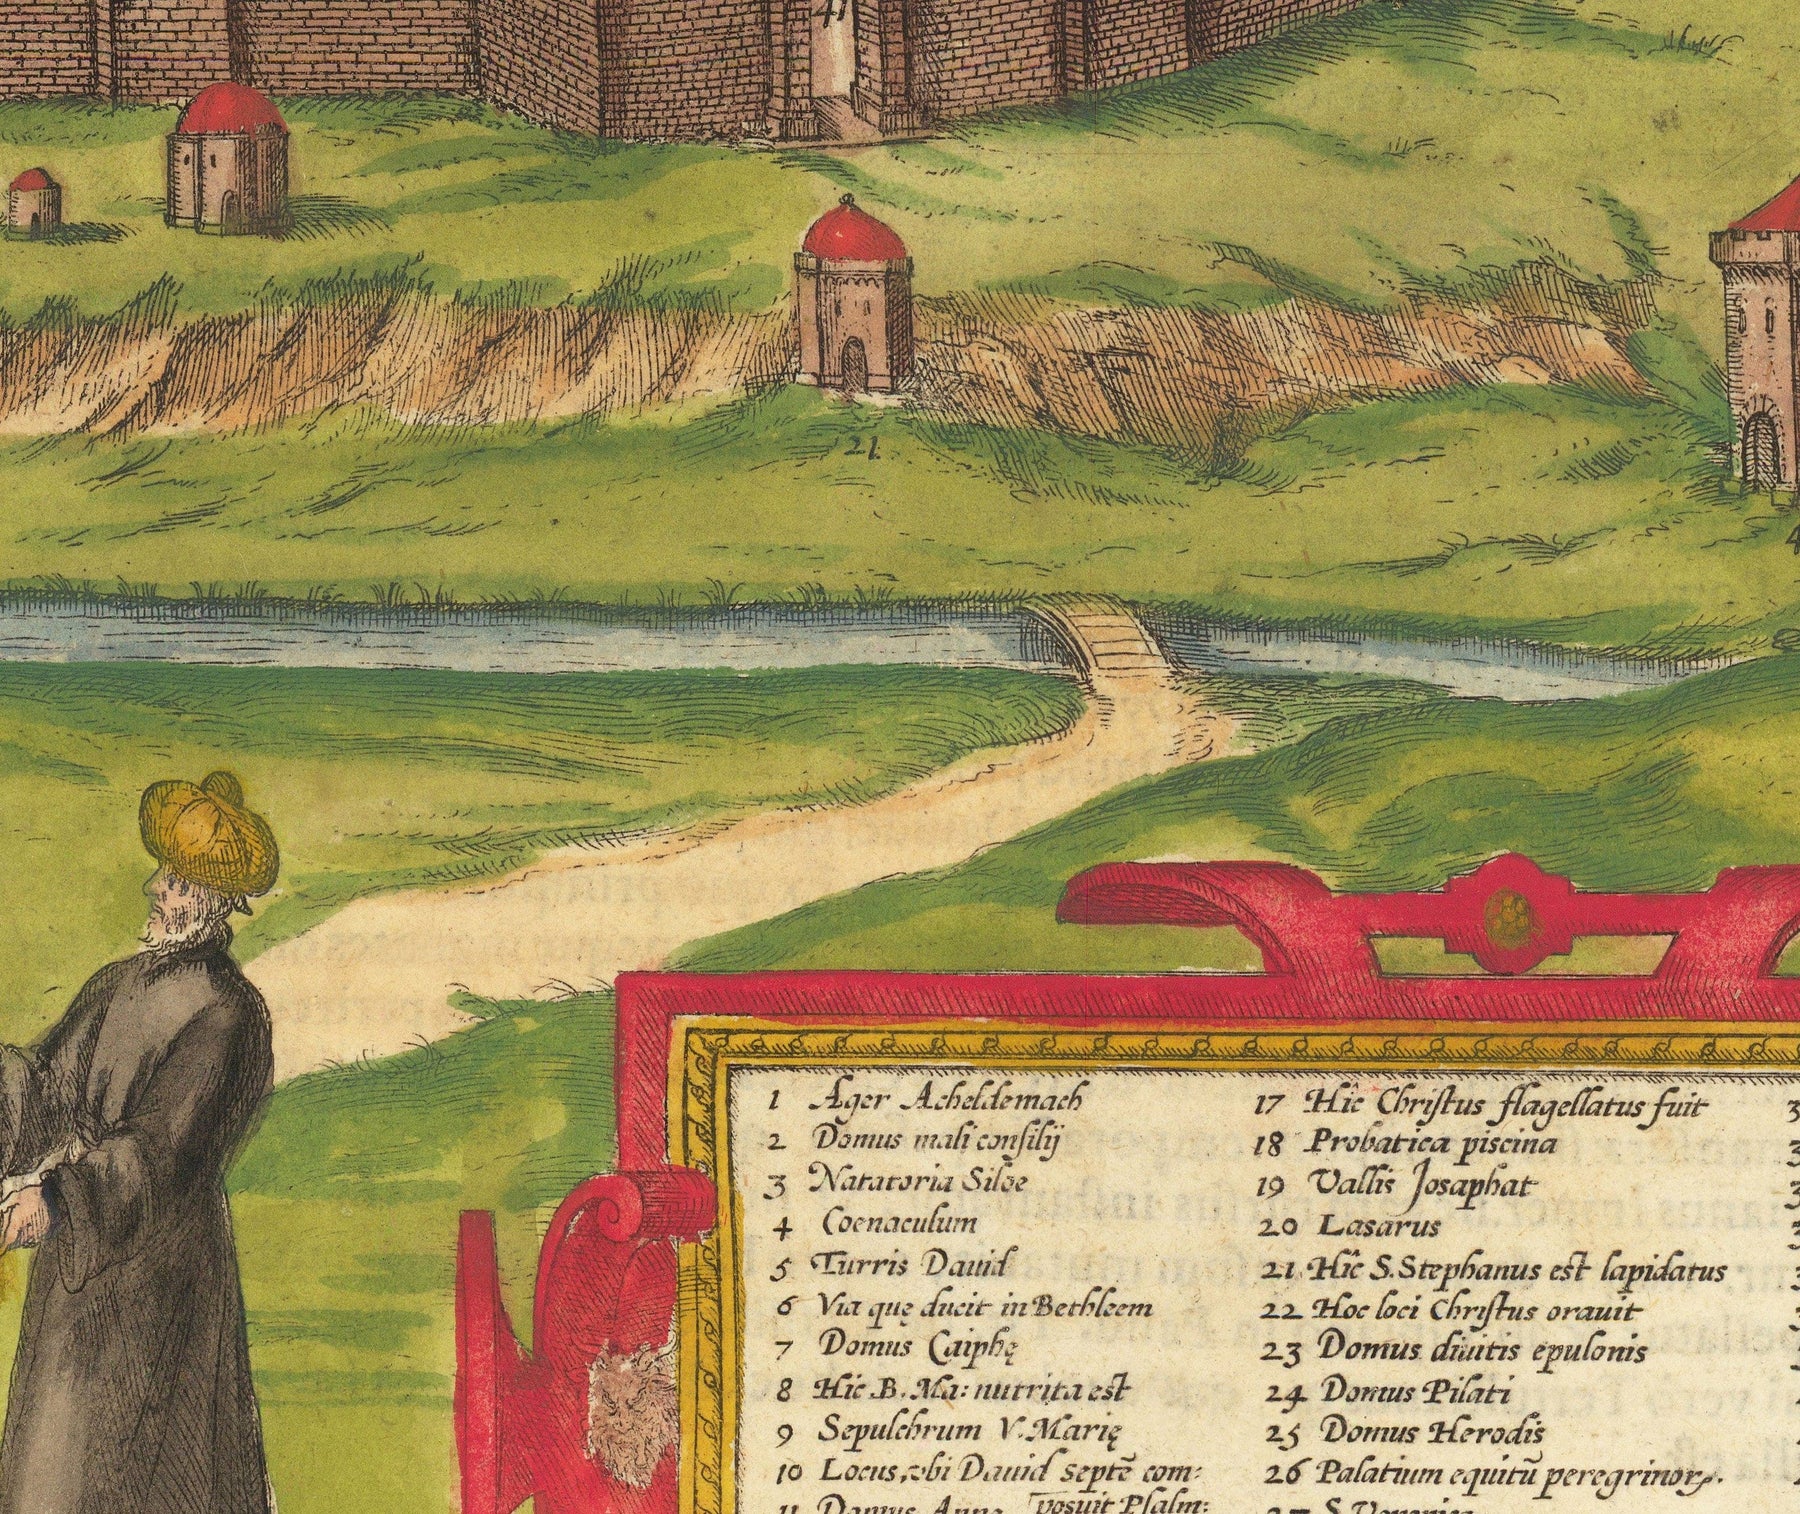 21
1 Ager Acheldemach
2 Domus mali consilij
3 Natatoria Siloe
4 Coenaculum
5 Turris Dauid
6 Via quę ducit in Bethleem
7 Domus Caiphę
8 Hic B. Ma: nutrita est
9 Sepulchrum V. Marię
10 Locus, vbi Dauid septē com:
posuit Psalm:
11 Domus Anna
17 Hîc Christus flagellatus fuit
18 Probatica piscina
19 Vallis Josaphat
20 Lasarus
21 Hîc S. Stephanus est lapidatus
22 Hoc loci Christus orauit
23 Domus diuitis epulonis
24 Domus Pilati
25 Domus Herodis
26 Palatium equitū peregrinor.
27 S. Veronica